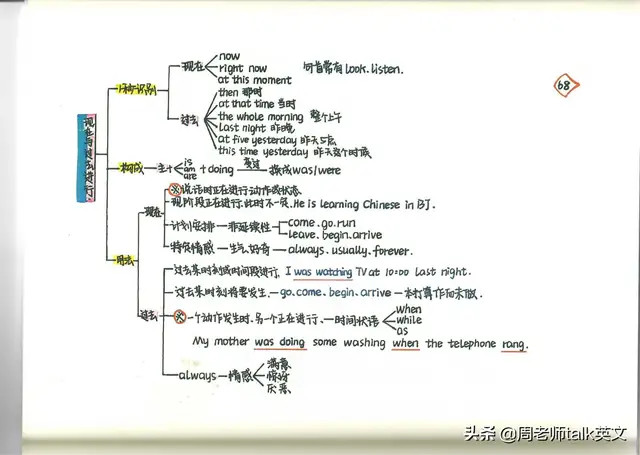 68
现在与过去进行.
1秒识别
现在
now
right now
at this moment
句首常有look.listen.
过去
then 那时
at that time 当时
the whole morning 整个上午
last night 昨晚
at five yesterday 昨天5点
this time yesterday 昨天这个时候
构成
主+
is
am
are
+doing
变过
换成was/were
用法
现在
※说话时正在进行动作或状态
现阶段正在进行.此时不一定.He is learning Chinese in BJ.
计划安排—非延续性
come.go.run
leave.begin.arrive
特殊情感—生气.好奇—always.usually.forever.
过去
过去某时刻或时间段进行. I was watching TV at 10:00 last night.
过去某时刻将要发生.—go.come.begin.arrive—本打算作而未做.
※一个动作发生时.另一个正在进行.—时间状语
when
while
as
My mother was doing some washing when the telephone rang.
always—情感
满意
惊讶
厌恶
头条 @周老师talk英文